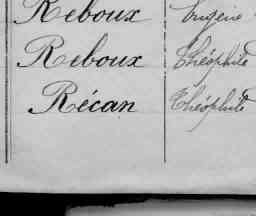 Reboux Eugène
Reboux Théophile
Récan Théophile